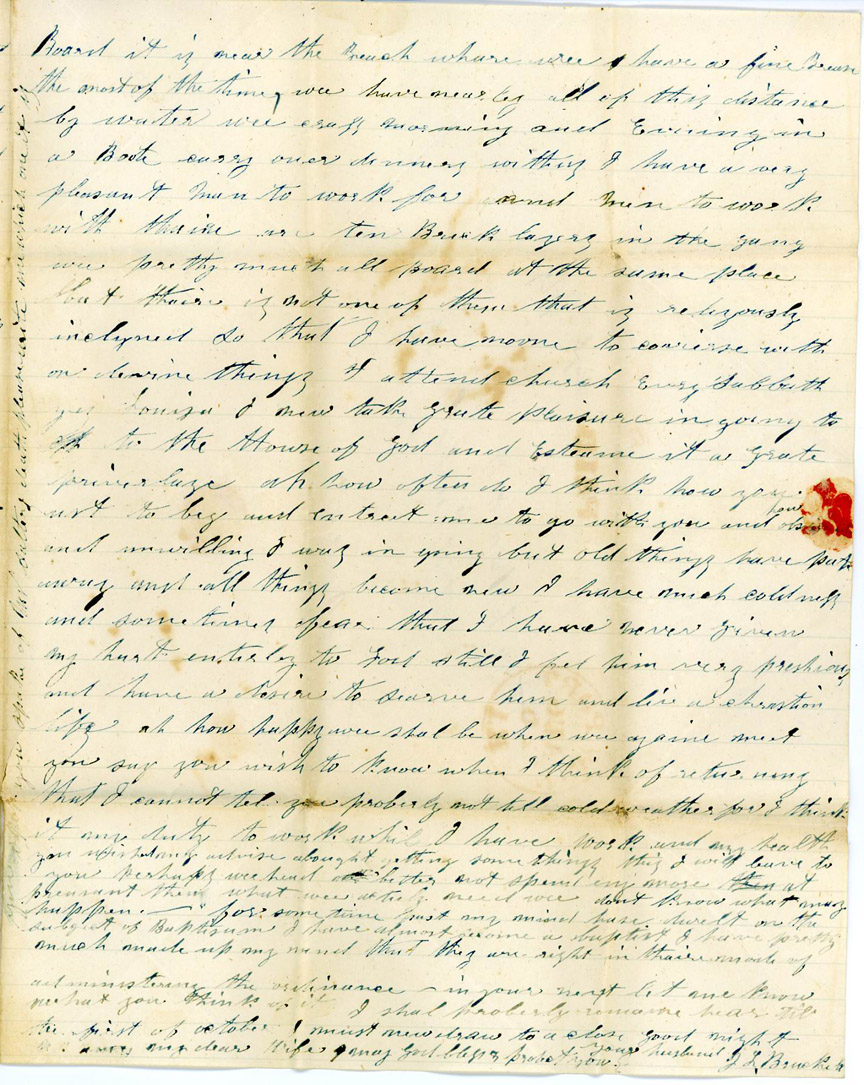 Board it is near the Beach whare wee have a fine Breese
the most of the time, wee have nearley all of this distance
by water wee cross morning and Evening in
a Boate carry over dinners with us I have a very
pleasant man to work for and men to work
with thaire are ten Brick layers in the gang
wee pretty much all board at the same place
but thaire is not one of them that is religously
inclyned so that I have noone to converse with
on devine things I attend church Evry Sabbath
yes Louiza I now take Grate pleasure in going to
to the House of God and Esteame it a Grate
priverlage ah how often do I think how you
ust to beg and entreat me to go with you and how
and unwilling I was in going but old things have past
away and all things become new I have much coldness
and sometimes fear that I have never Given
my hart entirley to God still I feel him very preshious
and have a desire to searve him and live a christian
life ah how happy wee shal be when wee againe meet
you say you wish to know when I think of returning
that I cannot tel you properly not till cold weather for I think
it my duty to work while I have work and my health
you wish my advise abought getting some things this I will leave to
you Perhaps wee had better not spend eny more then at
preasant then what wee actuly need wee dont know what may
happen — for some time past my mind has dwelt on the
subject of Baptisum I have almost become a baptist I have pretty
much made up my mind that they are right in thaire mode of
administering the ordinance — in your next let me know
what you think of it I shal properly remaine hear till
the first of october I must now draw to a close Good night
my dear Wife may God bless & protect you your husband J L Brackett
you spoke of her please write me which one it is